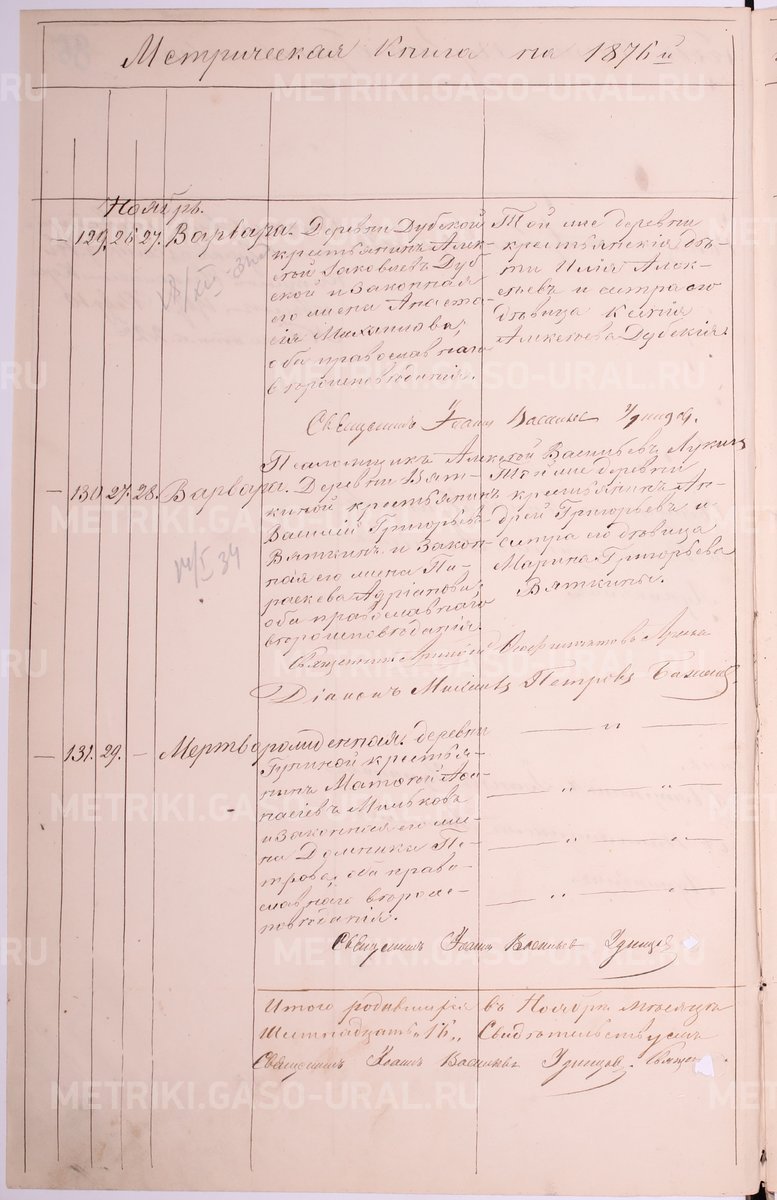 Метрическая Книга на 1876 й
Ноябрь.
129. 26 27. Варвара.
Деревни Дубской
крестьянинъ Алек-
сѣй Іаковлевъ Дуб
ской и законная
его жена Анаста-
сія Михайлова,
оба православнаго
вѣроисповѣданія.
Той же деревни
крестьянскія дѣ-
ти Илія Алек-
сѣевъ и сестра его
дѣвица Ксенія
Алексѣева Дубскія.
Священникъ Іоаннъ Васильевъ Удинцев.
Псаломщикъ Алексѣй Васильевъ Лукинъ
130. 27. 28. Варвара.
14/I 34
Деревни Вят-
киной крестьянинъ
Василій Григорьевъ
Вяткинъ и закон-
ная его жена Па-
раскева Адріанова,
оба православнаго
вѣроисповѣданія.
Той же деревни
крестьянинъ Ан-
дрей Григорьевъ и
сестра его дѣвица
Марина Григорьева
Вяткины.
Священникъ
Діаконъ Михаилъ Петровъ
131. 29. – Мертворожденная.
деревни
Гуниной крестья-
нинъ Матѳей Аѳа-
насіевъ Мильковъ
и законная его же-
на Домника Пе-
трова, оба право-
славнаго вѣроис-
повѣданія.
Священникъ Іоаннъ Васильевъ Удинцев
Итого родившихся въ Ноябрѣ мѣсяцѣ
Шестнадцать „16„ Свидѣтельствуемъ
Священникъ Іоаннъ Васильевъ Удинцов. Священ
METRIKI.GASO-URAL.RU